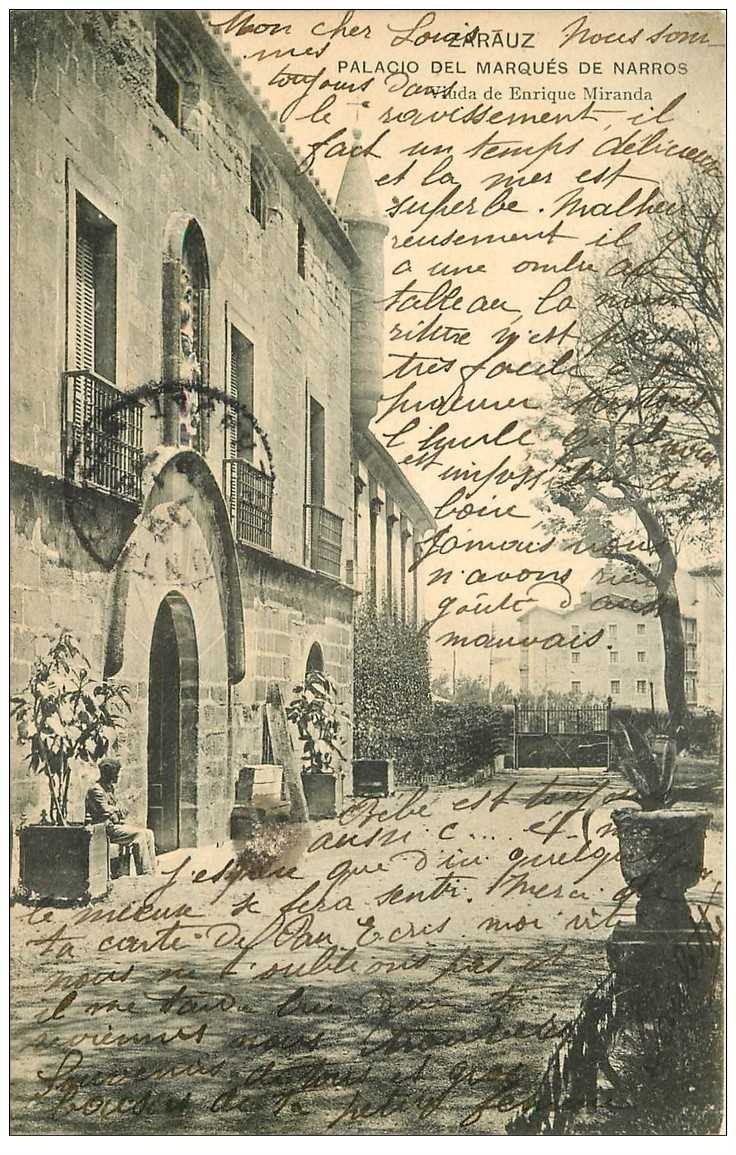 Mon cher Louis Nous som-
mes
ZARAUZ
PALACIO DEL MARQUÉS DE NARROS
toujours dans
Viuda de Enrique Miranda
le ravissement, il
fait un temps délicieux
et la mer est
superbe. Malheu
reusement il y
a une ombre au
tableau la nour
riture n'est pas
très facile à
procurer surtout
l'huile qu'il
est impossible de
boire,
Jamais nous
n'avons rien
goûté d'aussi
mauvais.
Bébé est toujours
aussi c... et
J'espère que d'ici quelques
le mieux se fera senti. Merci de
ta carte de Pau Ecris moi vite
nous ne t'oublions pas et
il me tarde que tu
reviennes nous
Souvenirs de tous et gros
baisers de ta petite femme